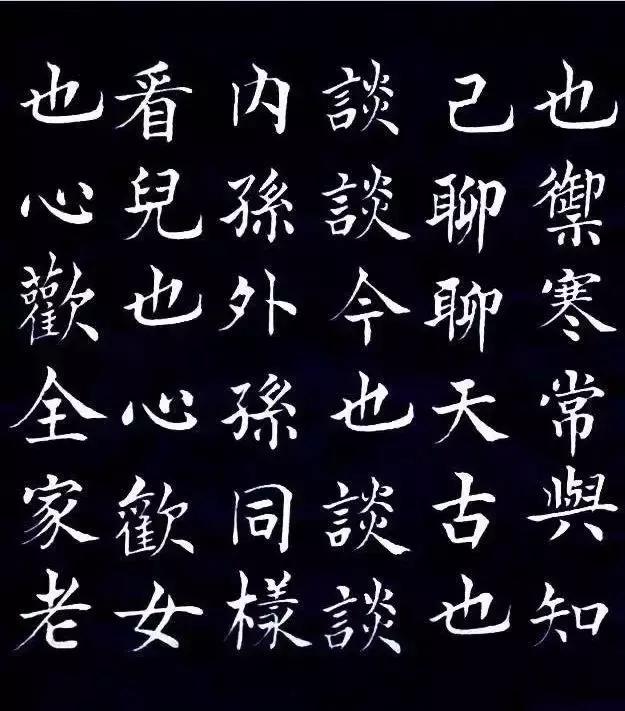 也禦寒常與知
己聊聊天古也
談談今也談談
内孫外孫同樣
看兒也心歡女
也心歡全家老